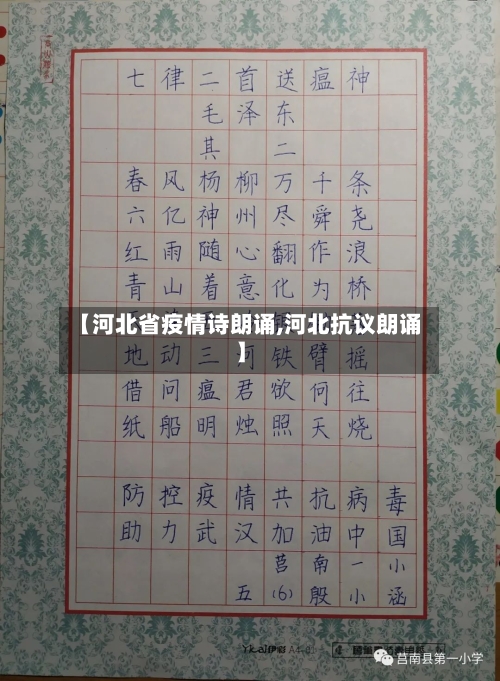 七律二首送瘟神
毛泽东
其二
春风杨柳万千条
六亿神州尽舜尧
红雨随心翻作浪
青山着意化为桥
【河北省疫情诗朗诵,河北抗议朗诵
】
地动三河铁臂摇
借问瘟君欲何往
纸船明烛照天烧
防控疫情共抗病毒
助力武汉加油中国
莒南一小
五(6)殷小涵
Ykai伊彩
莒南县第一小学